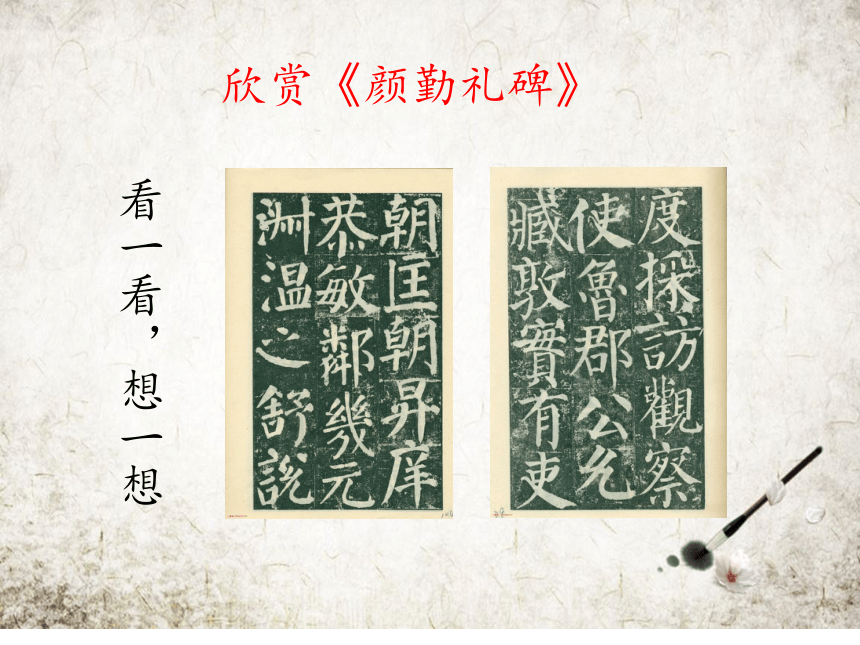 欣赏《颜勤礼碑》
看一看，想一想
朝匡朝昇庠
恭敏鄰幾元
淵温之舒說
度採訪觀察
使魯郡公允
臧敦實有吏